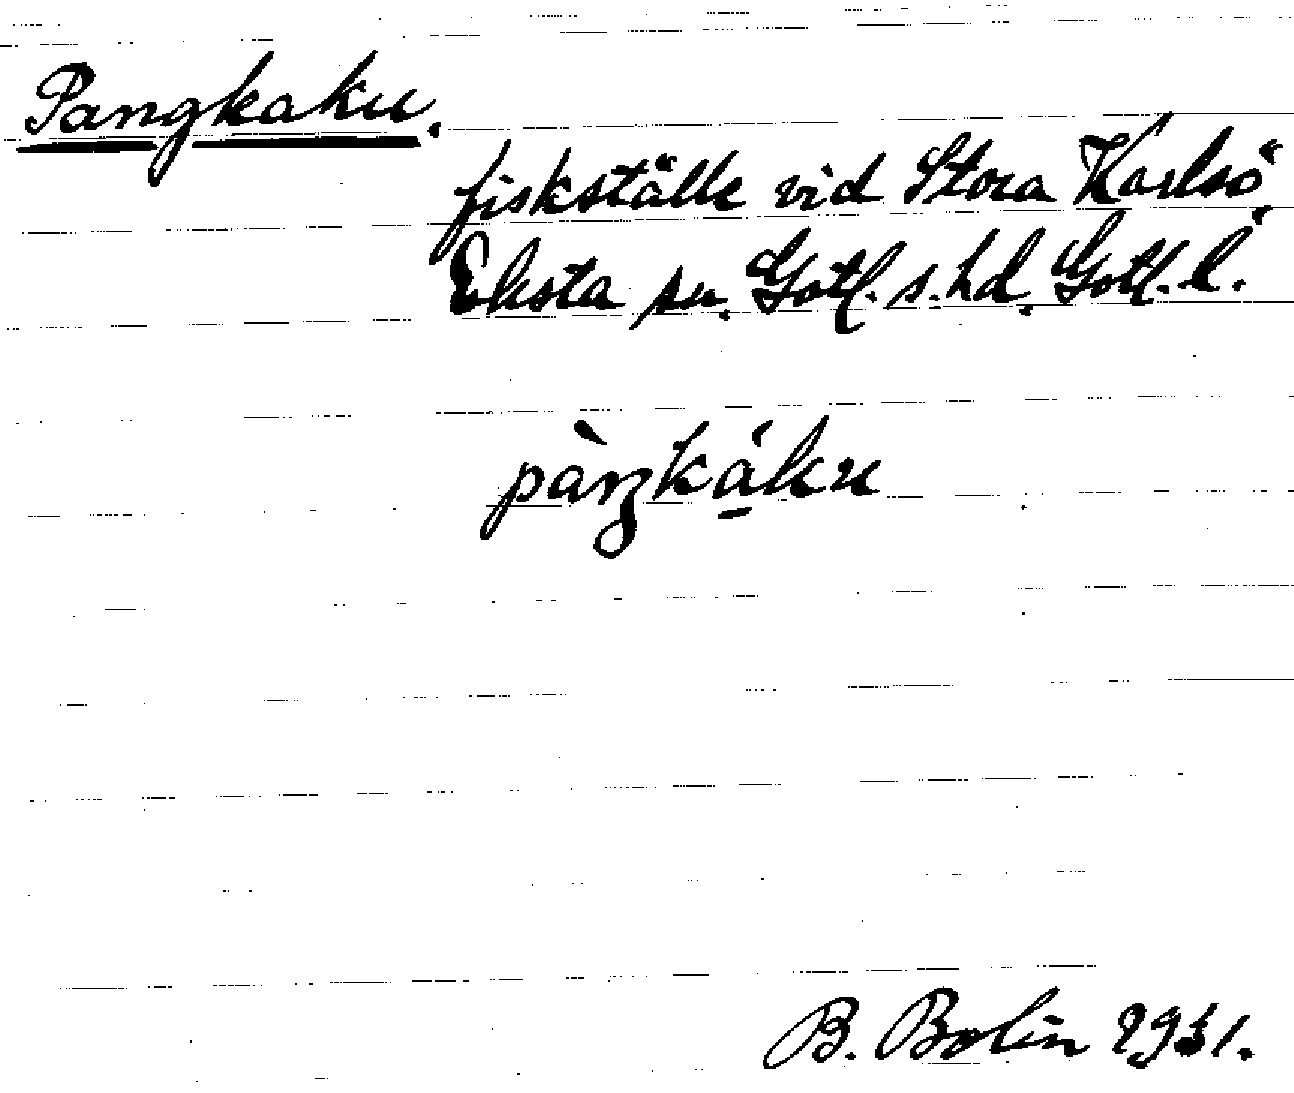 Pangkaku.
fiskställe vid Stora Karlsö,
Eksta sn. Gotl. s. hd. Gotl. l.
pàŋkáku
B. Bolin 1931.